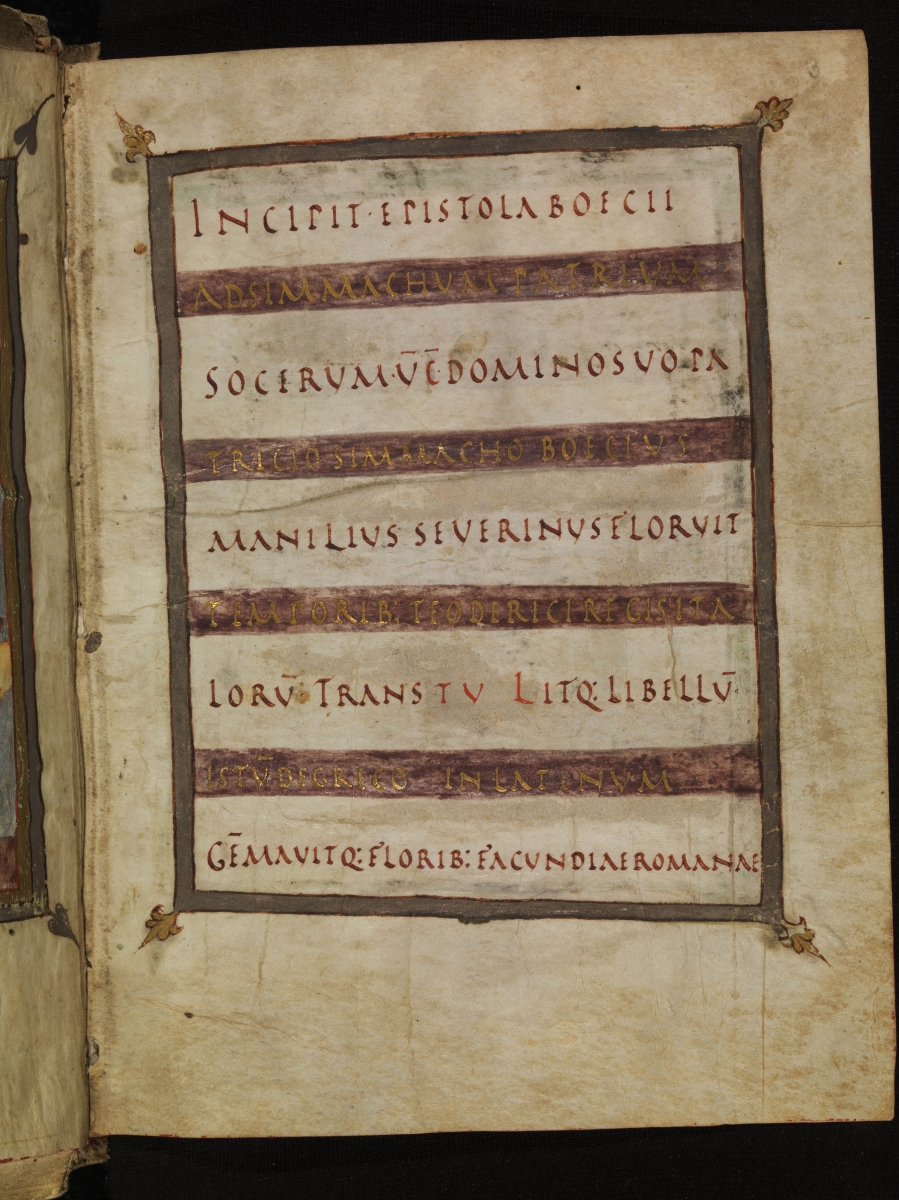 INCIPIT · EPISTOLA BOECII
AD SIMMACHUM PATRIUM
SOCERUM · V̄C̄ · DOMINO SUO · PA
TRICIO SIMMACHO BOECIUS
MANILIUS SEVERINUS FLORUIT
TEMPORIB; TEODERICI REGIS ITA
LORŪ TRANSTULITQ: LIBELLŪ ·
ISTŪ DE GRECO IN LATINUM
GĒMAVITQ: FLORIB; FACUNDIAE ROMANAE